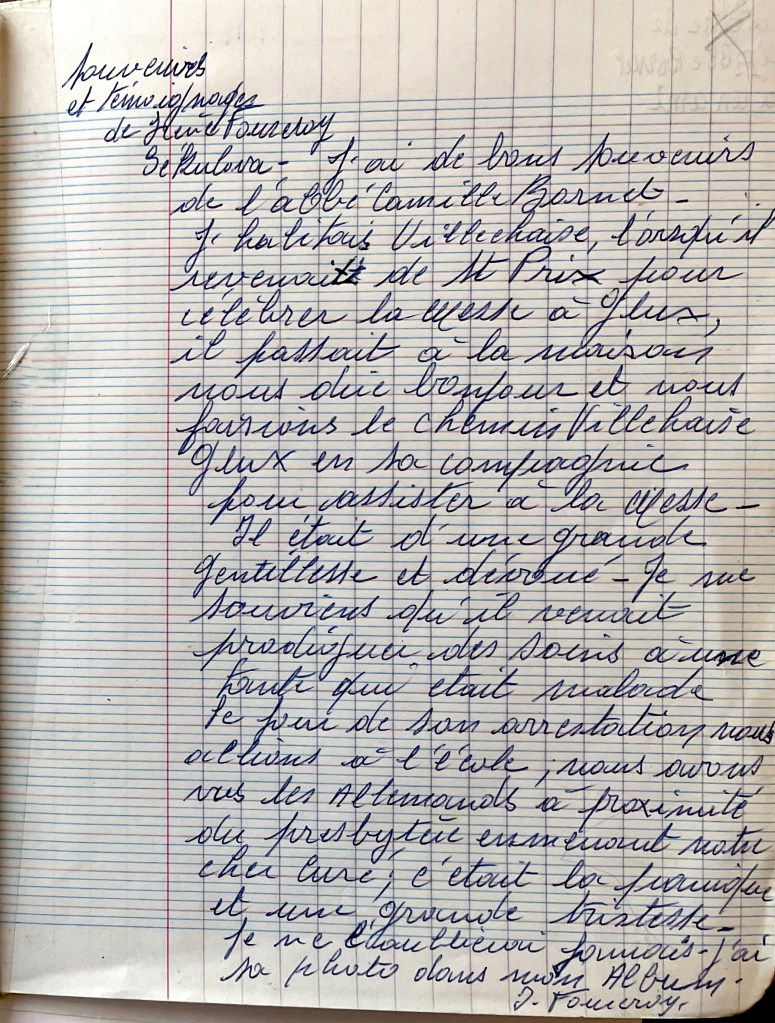 Souvenirs
et témoignages
de Irène Fourcroy
J'ai de bons souvenirs
de l'abbé Camille Bornet -
J. habitais Villechaise, l'orsqu'il
revenait de St Prix pour
célébrer la Messe à Glux,
il passait à la maison
nous dire bonjour et nous
faisions le chemin Villechaise
Glux en sa compagnie
pour assister à la Messe -
Il était d'une grande
gentillesse et dévoué - Je me
souviens qu'il venait
prodiguer des soins à une
tante qui était malade
le jour de son arrestation nous
allions à l'école ; nous avons
vus les Allemands à proximité
du presbytère emmenant notre
cher Curé ; c'était la panique
et une grande tristesse -
Je ne l'oublierai jamais - j'ai
sa photo dans mon Album.
I. Fourcroy.